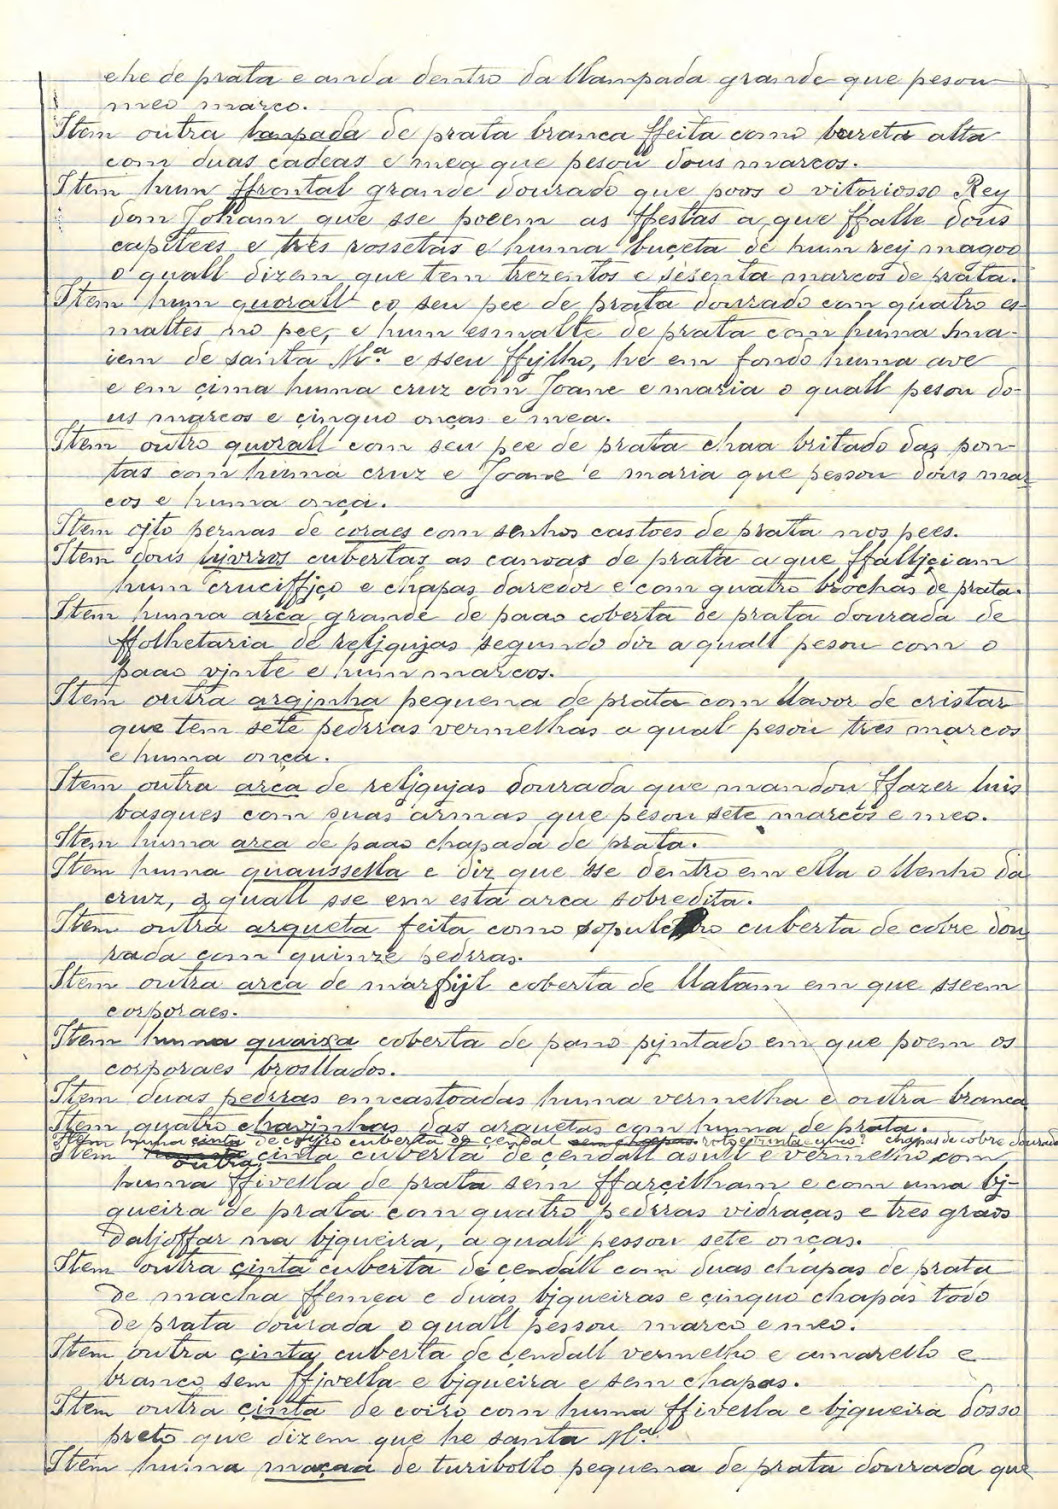 ehe de prata e anda dentro da llampada grande que pesou
meo marco.
Item outra lanpada de prata branca ffeita como bareta alta
com duas cadeas e mea que pesou dous marcos.
Item hum ffrontal grande dourado que poos o vitoriosso Rey
dom Joham que sse poeem as ffestas a que ffalle dous
capitees e tres rossetas e huma buçeta de hum rey magoo
o quall dizem que tem trezentos e sesenta marcos de prata.
Item hum quorall co seu pee de prata dourado com quatro es-
maltes no pee, e hum esmalte de prata com huma Ima-
iem de santa Mª e sseu ffylho, hé em fondo huma ave
e em çima huma cruz com Joane e maria o quall pesou do-
us marcos e çinquo onças e mea.
Item outro quorall com seu pee de prata chaa britado das pon-
tas com huma cruz e Joane e maria que pessou dous mar
cos e huma onça.
Item ojto pernas de coraes com senhos castoes de prata nos pees.
Item dous lyvrros cubertas as canoas de prata a que ffalljçiam
hum cruciffjço e chapas daredor e com quatro brochas de prata.
Item huma arca grande de paao coberta de prata dourada de
ffolhetaria de reljqujas segundo diz a quall pesou com o
paao vjnte e hum marcos.
Item outra arqjnha pequena de prata com llavor de cristar
que tem sete pedrras vermelhas a qual pesou tres marcos
e huma onça.
Item outra arca de reljqujas dourada que mandou ffazer luis
basques com suas armas que pesou sete marcos e meo.
Item huma arca de paao chapada de prata.
Item huma quaussella e diz que sse dentro em ella o llenho da
cruz, a quall sse em esta arca sobredita.
Item outra arqueta feita como sopulcro cuberta de cobre dou
rada com quinze pedrras.
Item outra arca de marfijl coberta de llatam em que sseem
corporaes.
Item huma quaixa coberta de pano pjntado em que poem os
corporaes brosllados.
Item duas pedrras emcastoadas huma vermelha e outra branca
Item quatro chavinhas das arquetas com huma de prata.
Item huma cinta de coyro cuberta de çendal sem chapas chapas de cobre dourado
Item outra çinta cuberta de çendall asull e vermelho com
huma ffivella de prata sem ffarçilham e com uma bj-
queira de prata com quatro pedrras vidraças e tres graos
daljoffar na bjqueira, a quall pessou sete onças.
Item outra çinta cuberta de çendall com duas chapas de prata
de macha ffemea e duas bjqueiras e çinquo chapas todo
de prata dourada o quall pessou marco e meo.
Item outra çinta cuberta de çendall vermelho e amarello e
branco sem ffjvella e bjqueira e sem chapas.
Item outra çinta de coiro com huma ffivella e bjqueira dosso
preto que dizem que he santa Mª
Item huma maçaa de turibollo pequena de prata dourada que